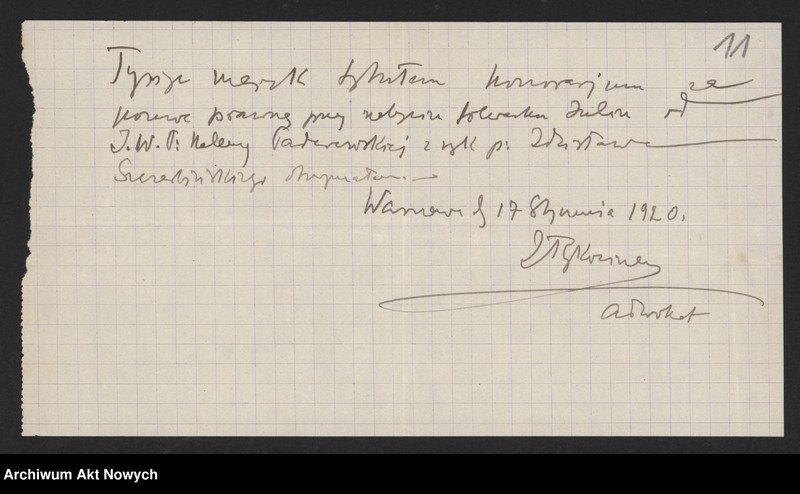 11
Tysiąc marek tytułem honorarjum za
pomoc prawną przy nabyciu folwarku Julin od
J.W.P. Heleny Paderewskiej z rąk p. Zdzisława
Szczerbińskiego otrzymałem.
Warszawa d 17 Stycznia 1920.
adwokat
Archiwum Akt Nowych